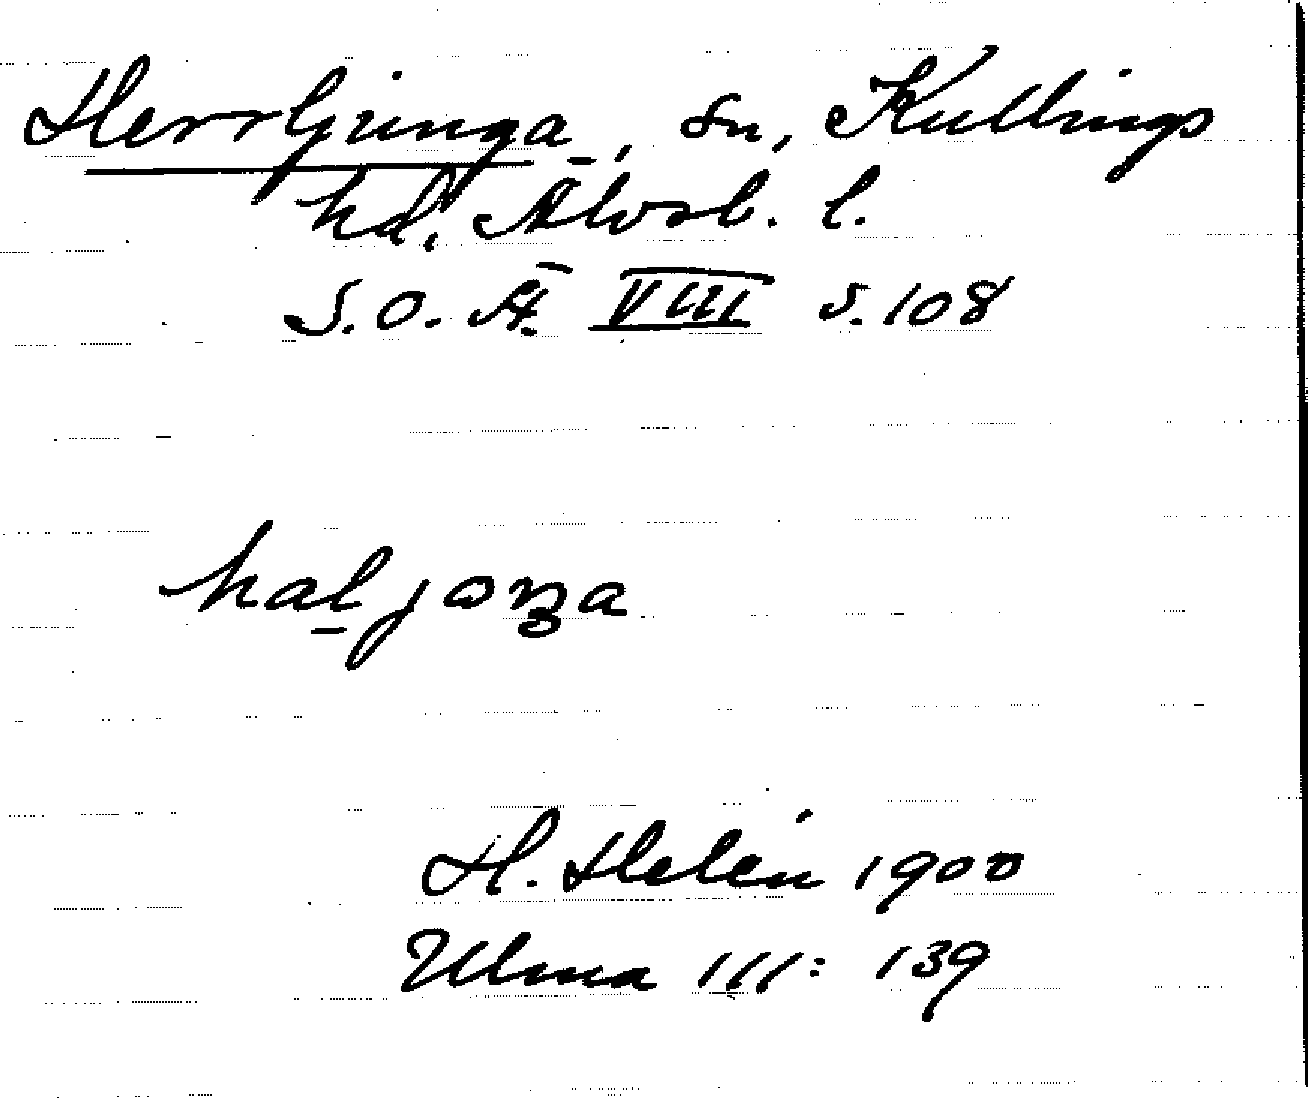 Herrljunga, sn, Kullings
hd, Älvsb. l.
S.O.Ä. VIII s. 108
haljaŋa
H. Helén 1900
Ulma 111: 139